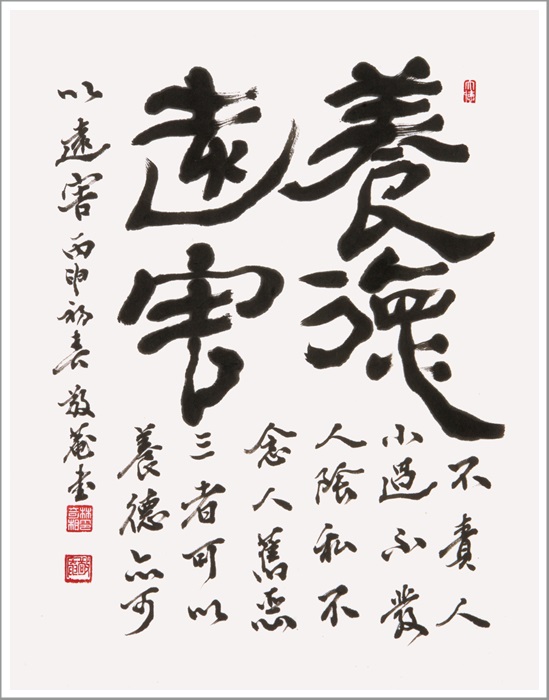 養德
遠害
不責人
小過不發
人陰私不
念人舊惡
三者可以
養德亦可
以遠害丙申初春敬菴書